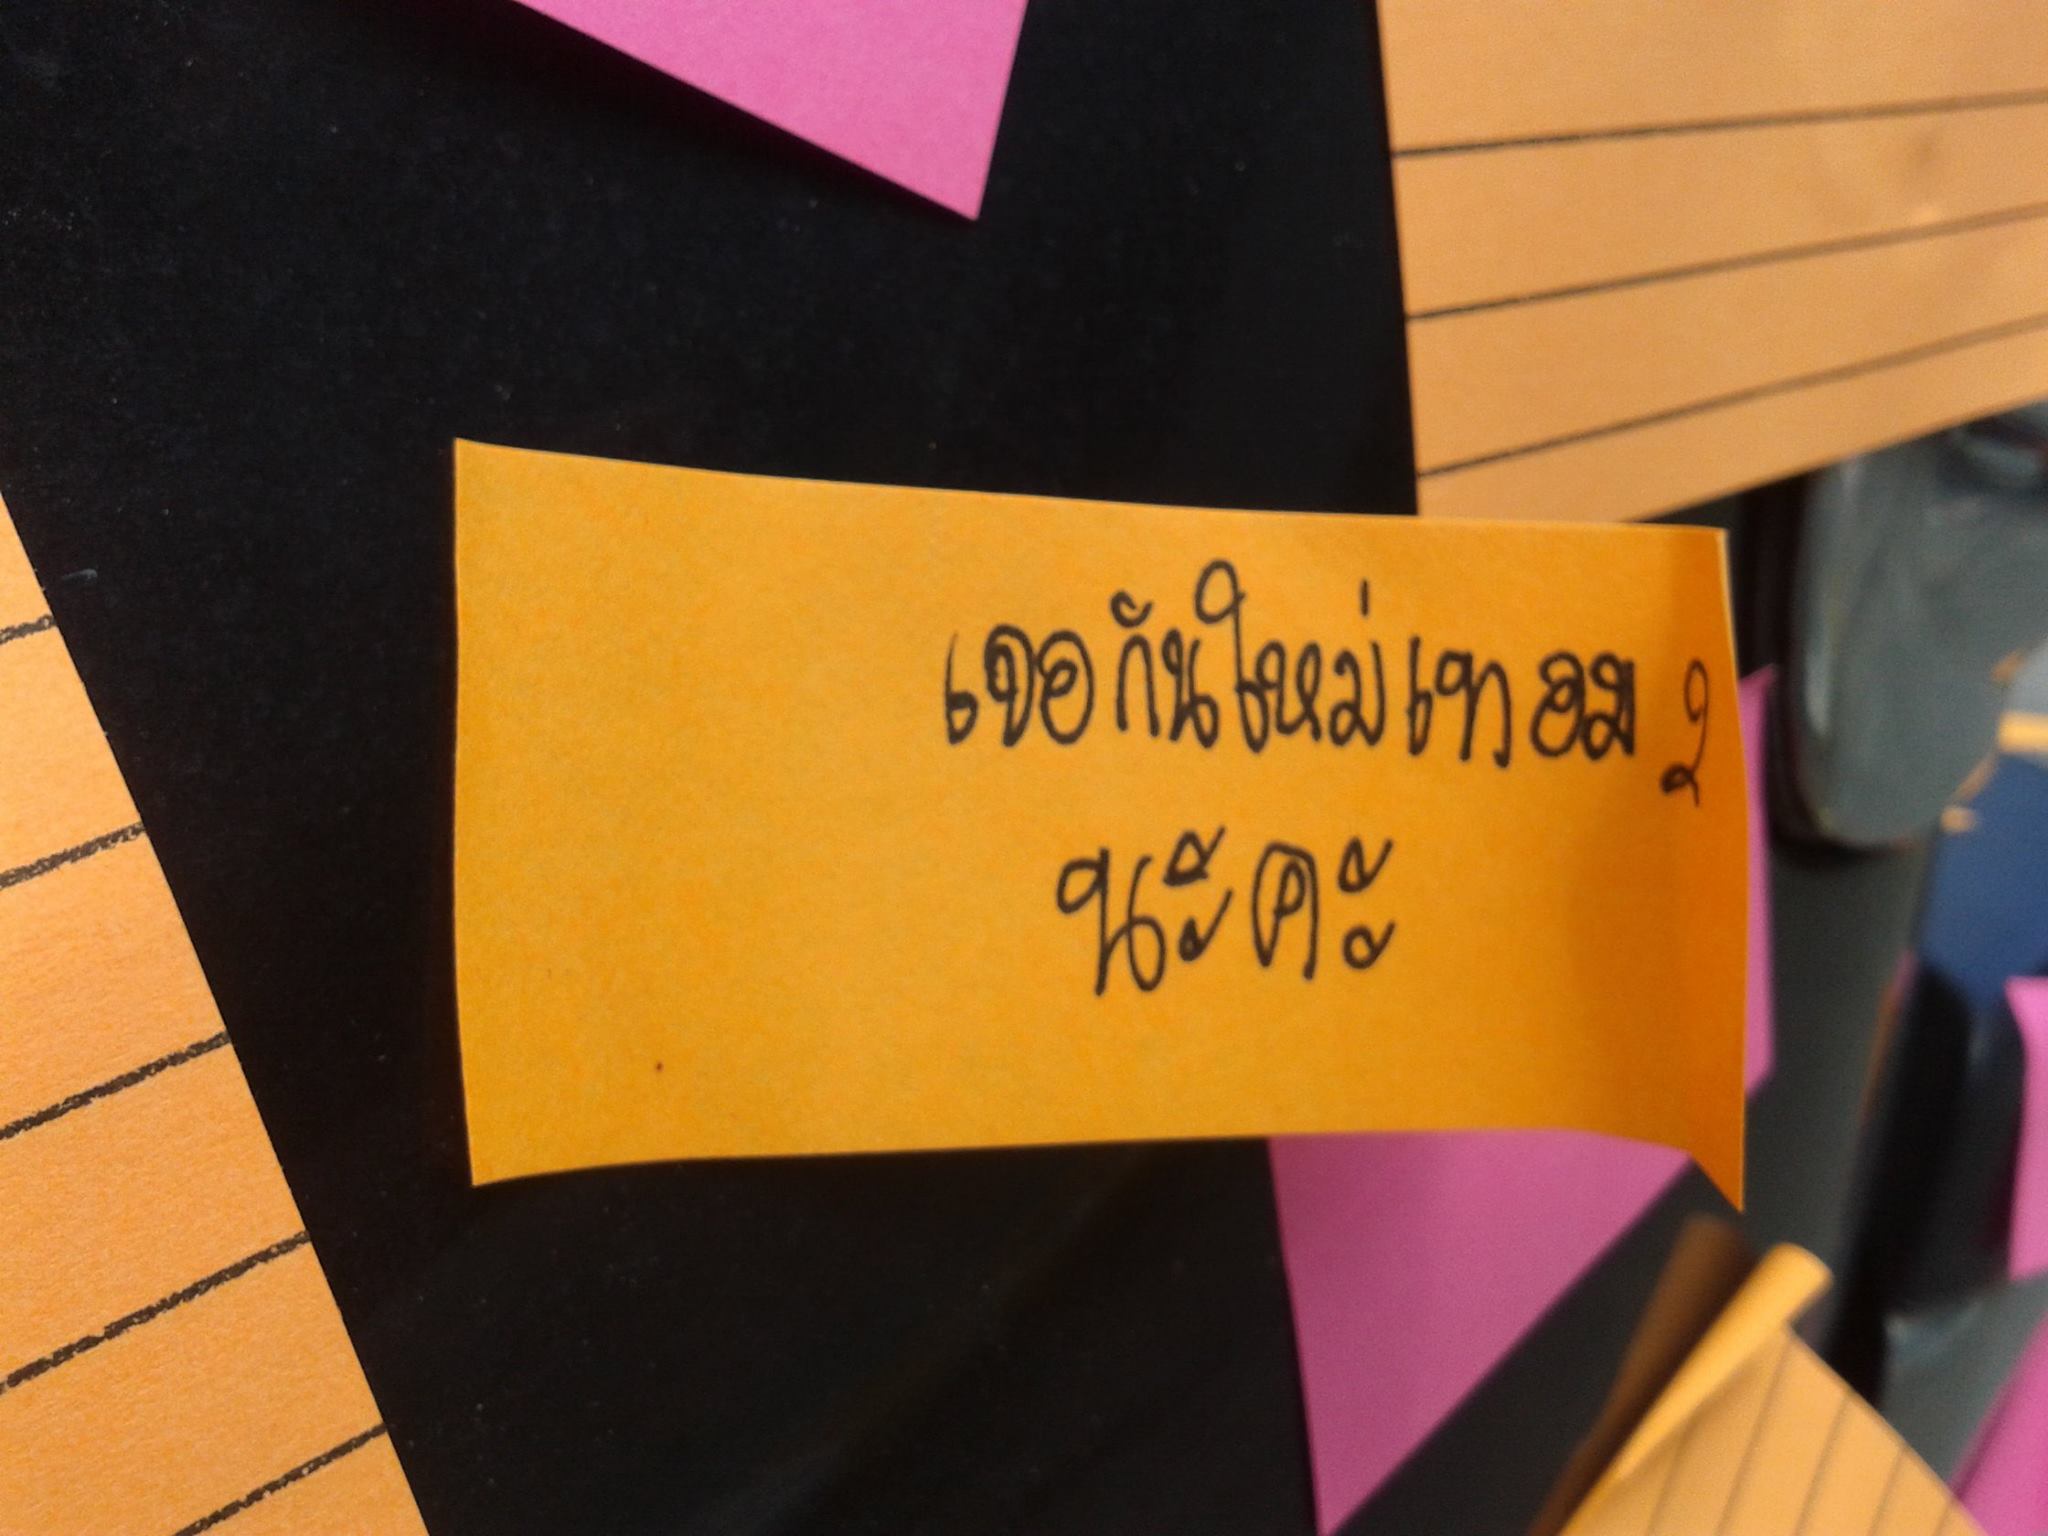 เจอกันใหม่เทอม 2
นะคะ